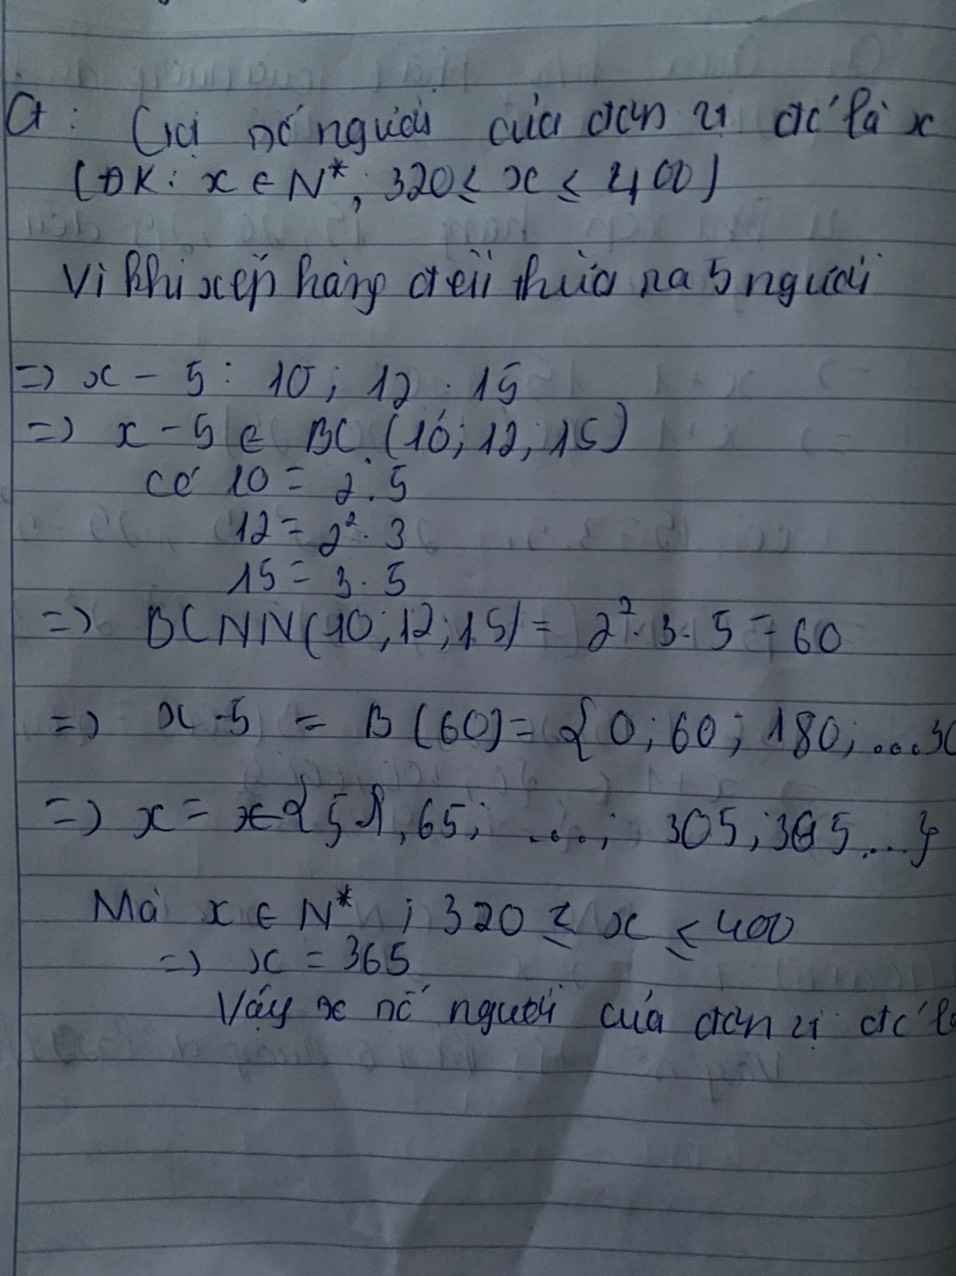 a: Gọi số người của đơn vị đó là x
(ĐK: x ∈ N*, 320 ≤ x ≤ 400)
Vì khi xếp hàng đều thừa ra 5 người
=> x - 5 : 10; 12 : 15
=> x - 5 ∈ BC (10; 12; 15)
có 10 = 2.5
12 = 2². 3
15 = 3. 5
=> BCNN(10; 12; 15) = 2². 3. 5 = 60
=> x - 5 = B (60) = {0; 60; 180; ...
=> x = x ∈ {5, 65; ...; 305; 365...}
Mà x ∈ N* ; 320 ≤ x ≤ 400
=> x = 365
Vậy số người của đơn vị đó